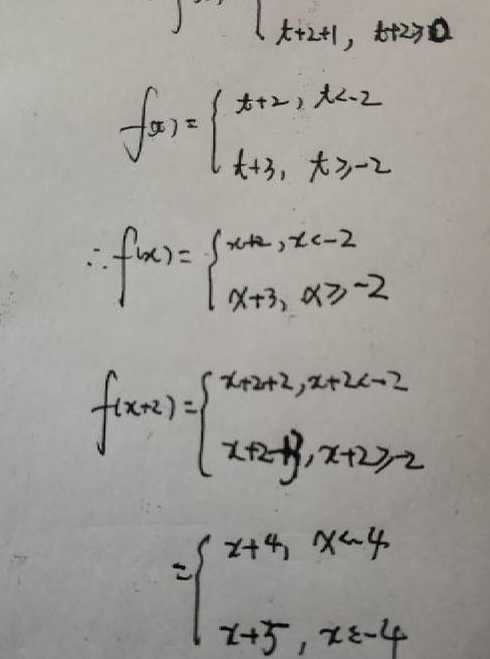 t+2+1, t+2≥0
f(x)= { t+2, t<-2
t+3, t≥-2
∴ f(x)= { x+2, x<-2
x+3, x≥-2
f(x+2)= { x+2+2, x+2<-2
x+2+3, x+2≥-2
= { x+4, x<-4
x+5, x≥-4